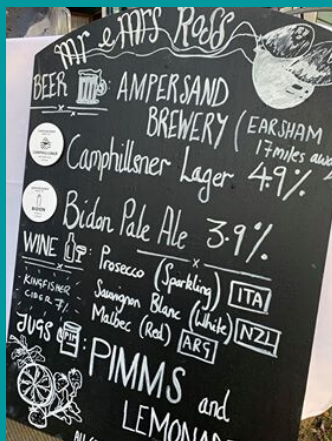 mr & mrs Ross
BEER : AMPERSAND
BREWERY (EARSHAM
17 miles away
Camphillsner Lager 4.9%
Bidon Pale Ale 3.9%
BIDON
WINE : Prosecco (Sparkling) ITA
Sauvignon Blanc (White) NZL
Malbec (Red) ARG
KINGFISHER
CIDER 7%
JUGS PIMMS : PIMMS and
LEMONAD